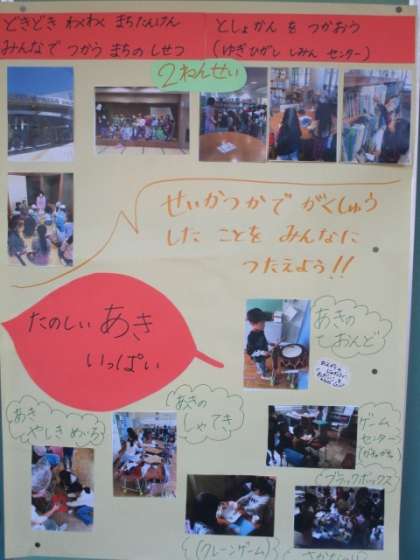 どきどき わくわく まちたんけん
みんなで つかう まちの しせつ
としょかん を つかおう
(ゆぎひがし しみん センター)
2ねんせい
せいかつかで がくしゅう
した ことを みんなに
つたえよう!!
たのしい あき
いっぱい
あきの
しゃてき
あき
やしき めいろ
ゲーム
センター
ブラックボックス
(クレーンゲーム)